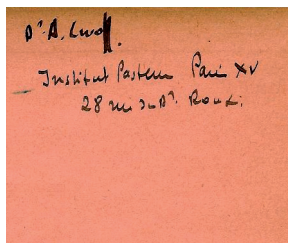 Dr. A. Lwoff.
Institut Pasteur Paris XV
28 rue du Dr. Roux.